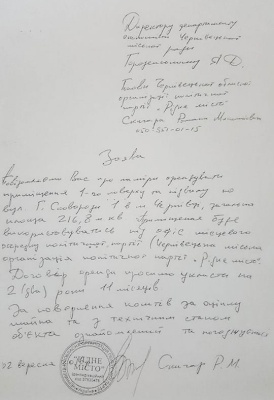 Директору департаменту
економіки Чернівецької
міської ради
Городенському Я.Д.
Голови Чернівецької обласної
організації політичної
партії "Рідне місто"
Скичара Романа
050 501-01-15
Заява
Повідомляємо Вас про наміри орендувати
приміщення 1-го поверху та підвалу по
вул. Г. Сковороди 1 в м. Чернівці, загальна
площа 216,8 м кв. Приміщення буде
використовуватись під офіс місцевого
осередку політичної партії (Чернівецька міська
організація політичної партії "Рідне місто".
Договір оренди просимо укласти на
2 (два) роки 11 місяців
За повернення коштів за оцінку
майна та з технічним станом
об'єкта ознайомлений та погоджуюсь
02 вересня
"РІДНЕ
МІСТО"
Р.М.